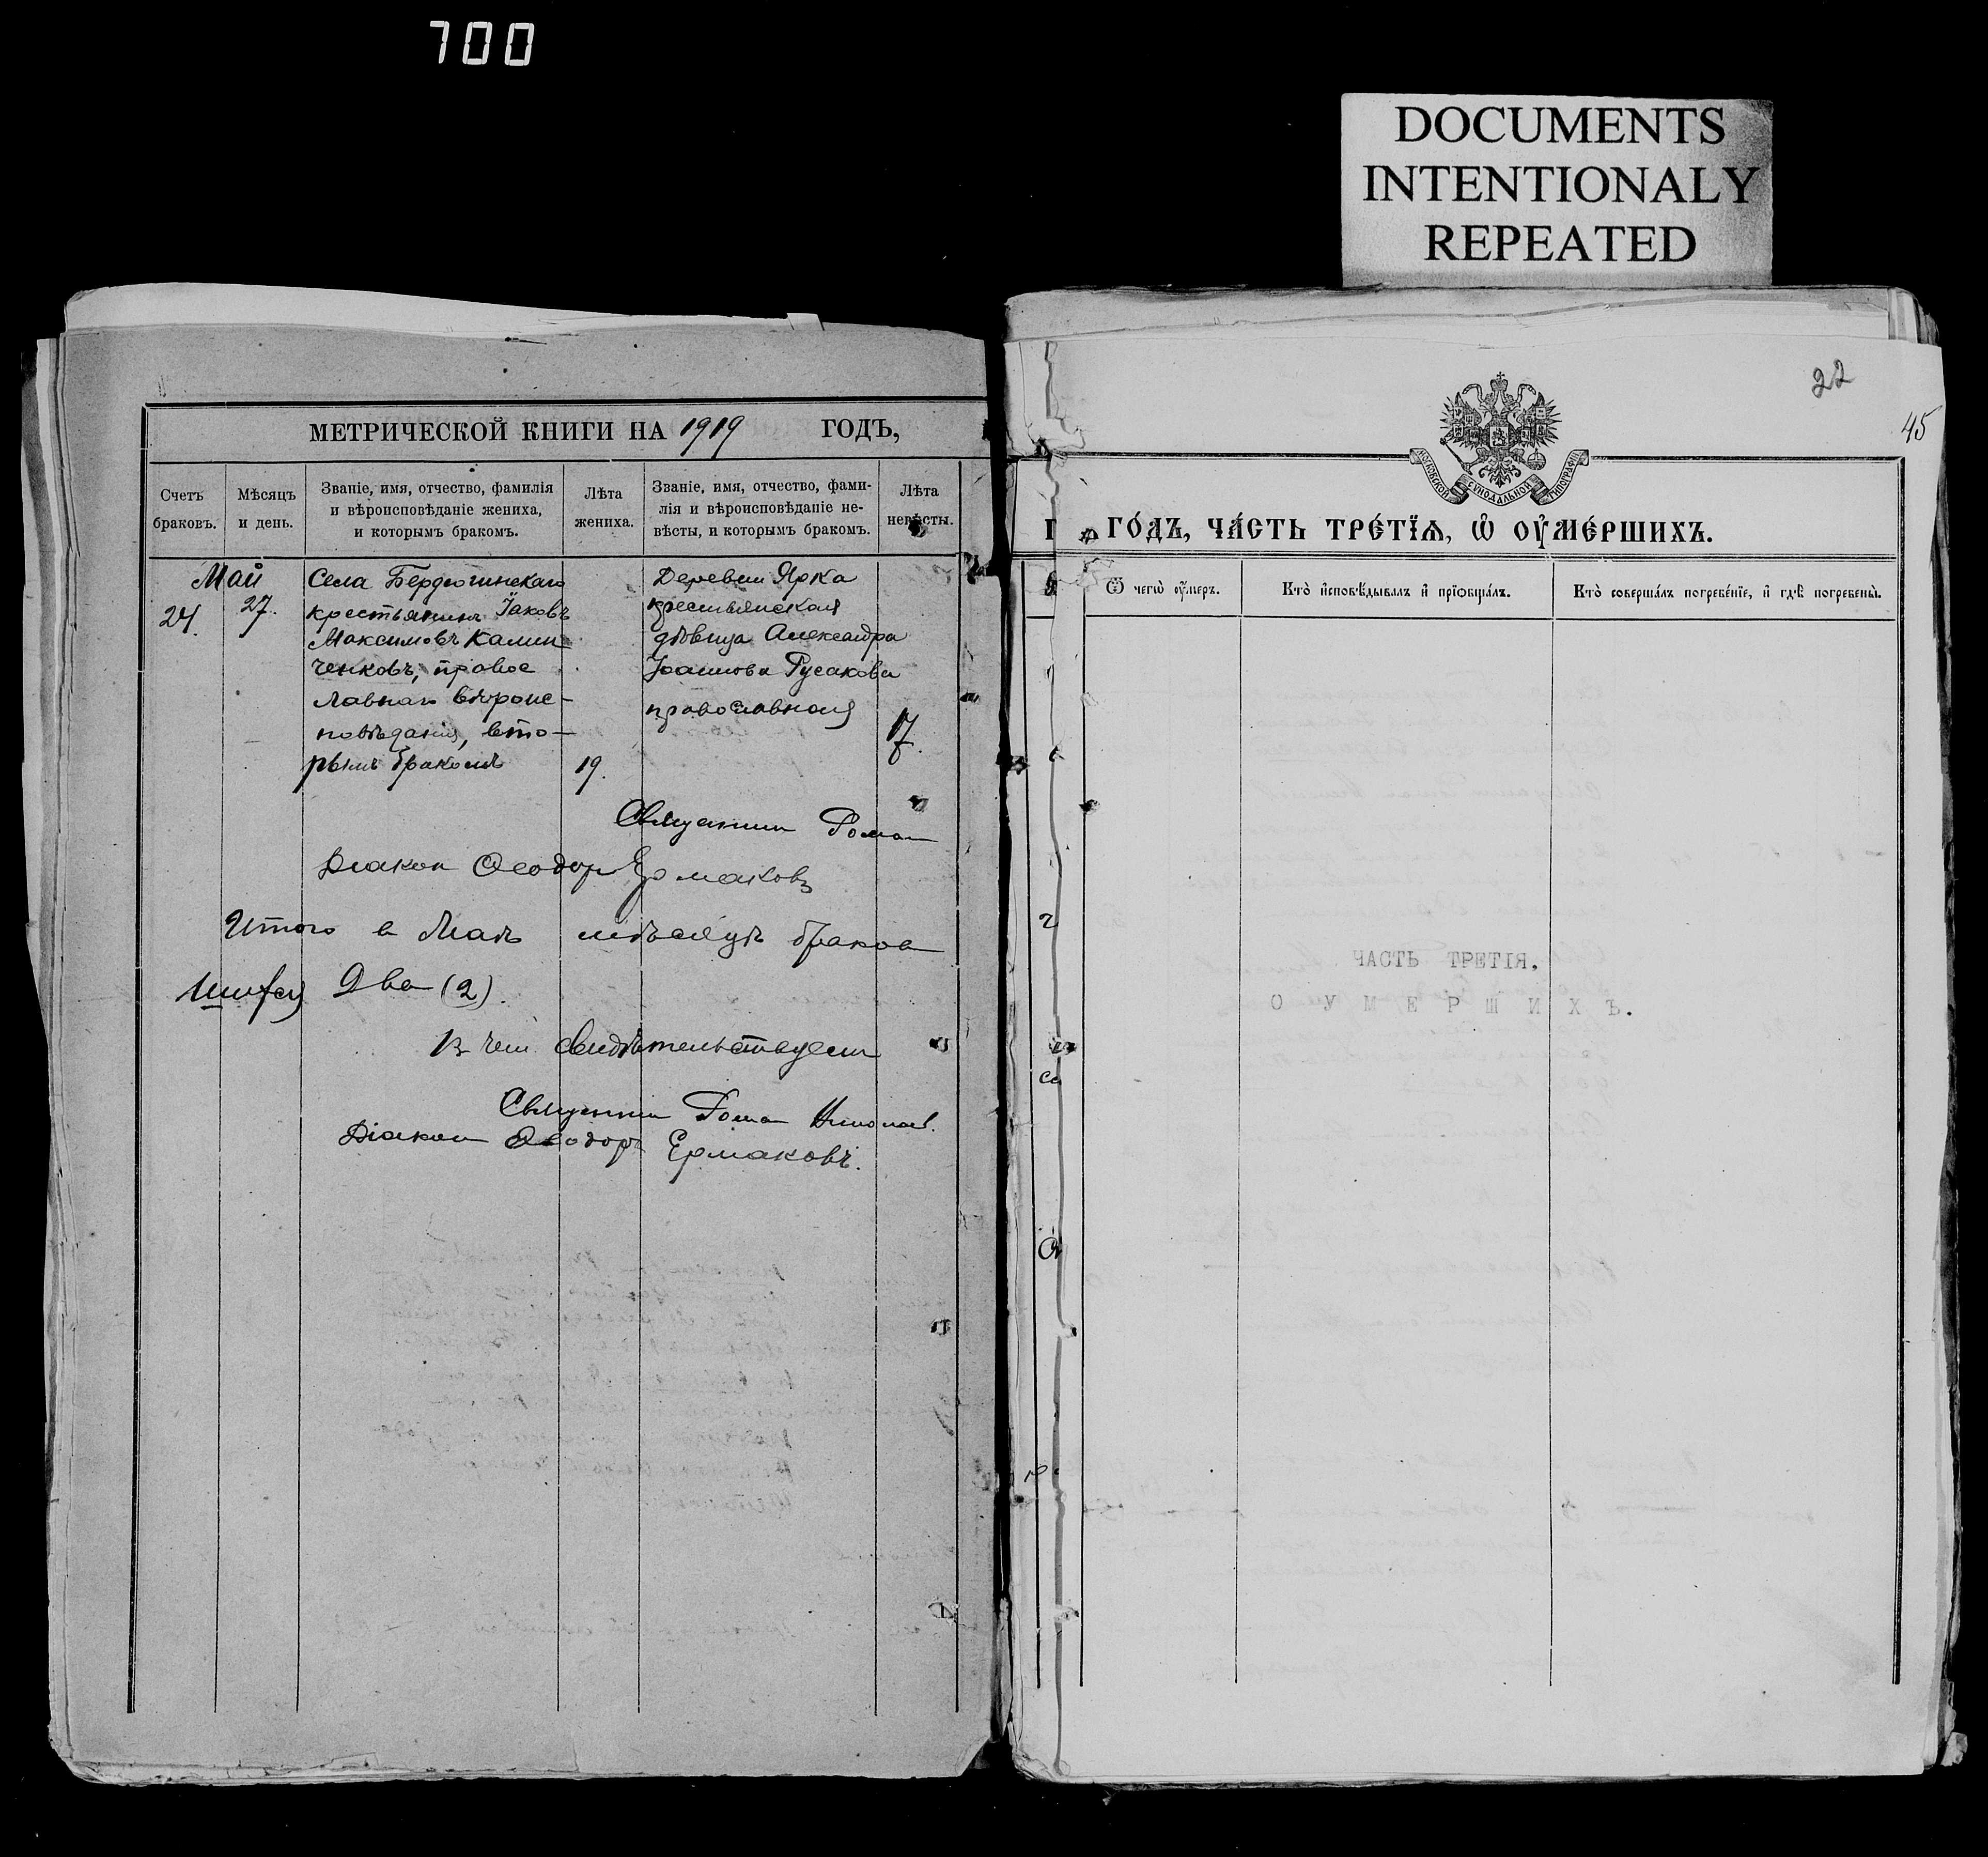 700
DOCUMENTS
INTENTIONALY
REPEATED
МЕТРИЧЕСКОЙ КНИГИ НА 1919 ГОДЪ,
Счетъ браковъ.
Мѣсяцъ и день.
Званіе, имя, отчество, фамилія
и вѣроисповѣданіе жениха,
и которымъ бракомъ.
Лѣта жениха.
Званіе, имя, отчество, фами-
лія и вѣроисповѣданіе не-
вѣсты, и которымъ бракомъ.
Лѣта невѣсты.
Май
24.
27.
Села Бердюгинскаго
крестьянинъ Іаковъ
Максимовъ Калин-
ченковъ, правос
лавнаго вѣроис-
повѣданія, вто-
рымъ бракомъ
19.
Деревни Ярка
крестьянская
дѣвица Александра
Іоаннова Русакова
православная
17.
Священник Роман
Діакон Ѳеодоръ Ермаковъ
Итого в Маѣ мѣсяцѣ браков
Два (2).
В чем свидѣтельствуем
Священник Роман
Діакон Ѳеодоръ Ермаковъ.
22
45
МОСКОВСКОЙ СѴНОДАЛЬНОЙ ТИПОГРАФІИ
ГО́ДЪ, ЧА́СТЬ ТРЕ́ТЇѦ, Ѡ҆ ОУ҆МЕ́РШИХЪ.
Ѿ чегѡ̀ оу҆́меръ.
Кто̀ и҆сповѣ́дывалъ и҆ прїѡбща́лъ.
Кто̀ соверша́лъ погребе́нїе, и҆ гдѣ̀ погребены̀.
ЧАСТЬ ТРЕТІЯ.
О УМЕРШИХЪ.